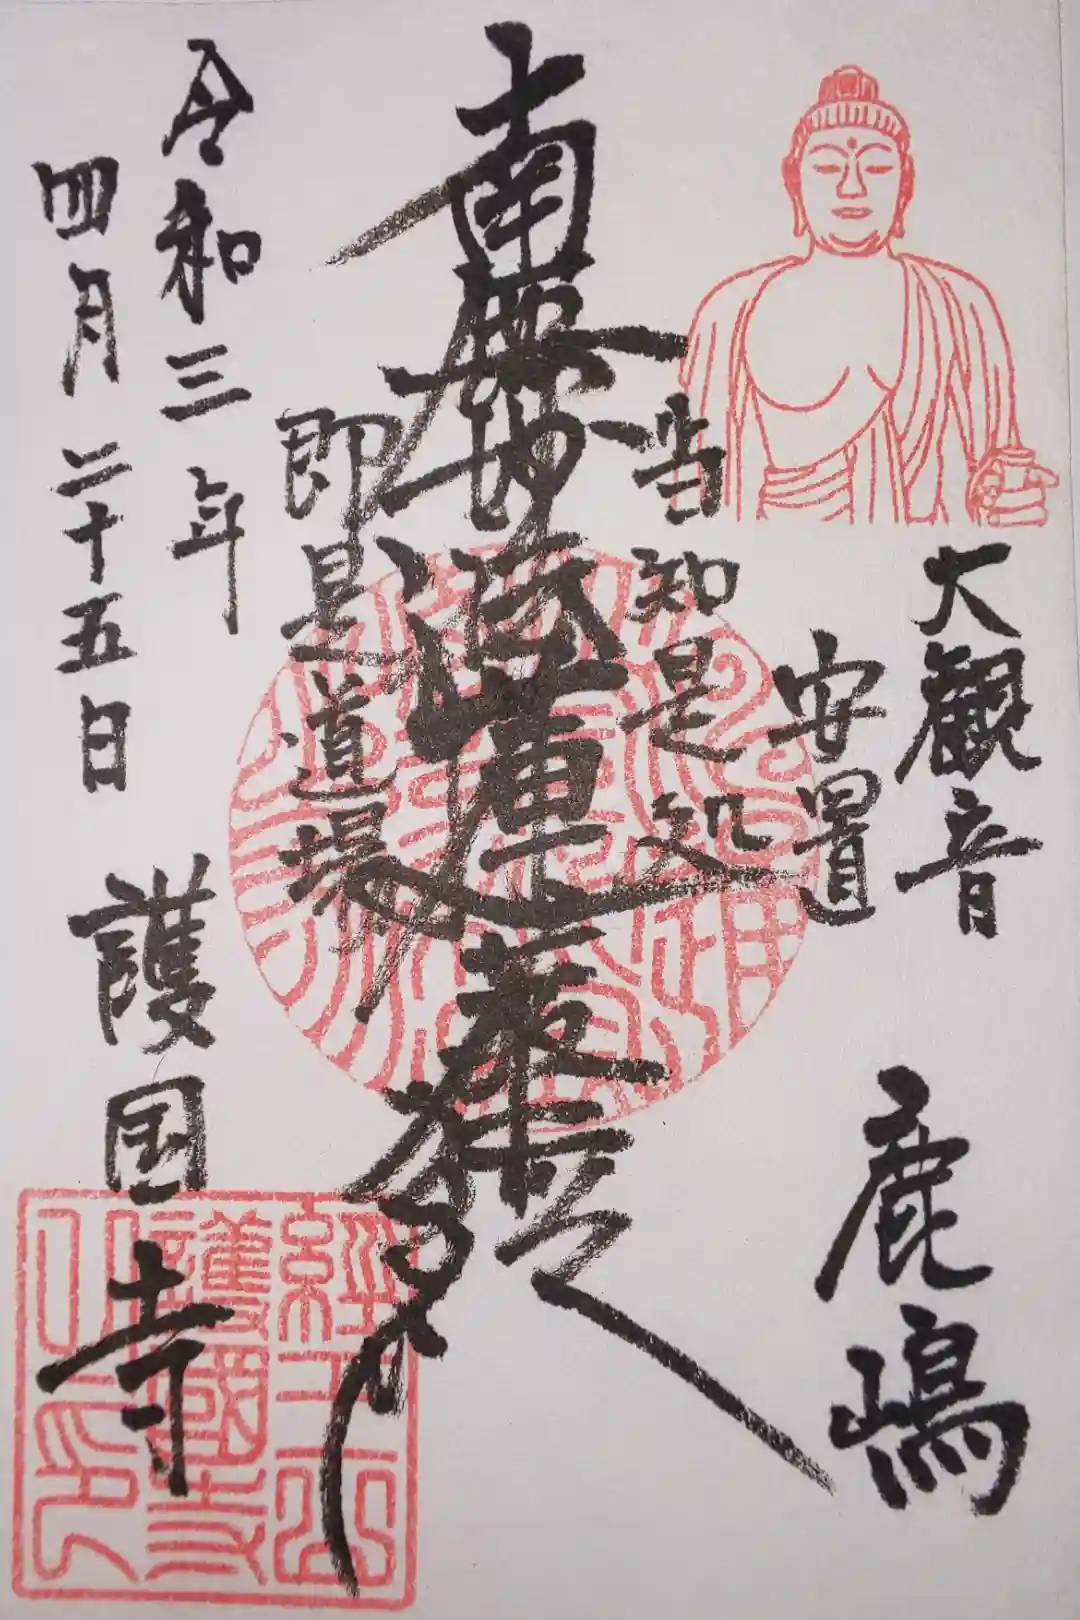 鹿嶋
大観音
安置
当知是処
南無妙法蓮華経
即是道場
令和三年
四月二十五日
護国寺